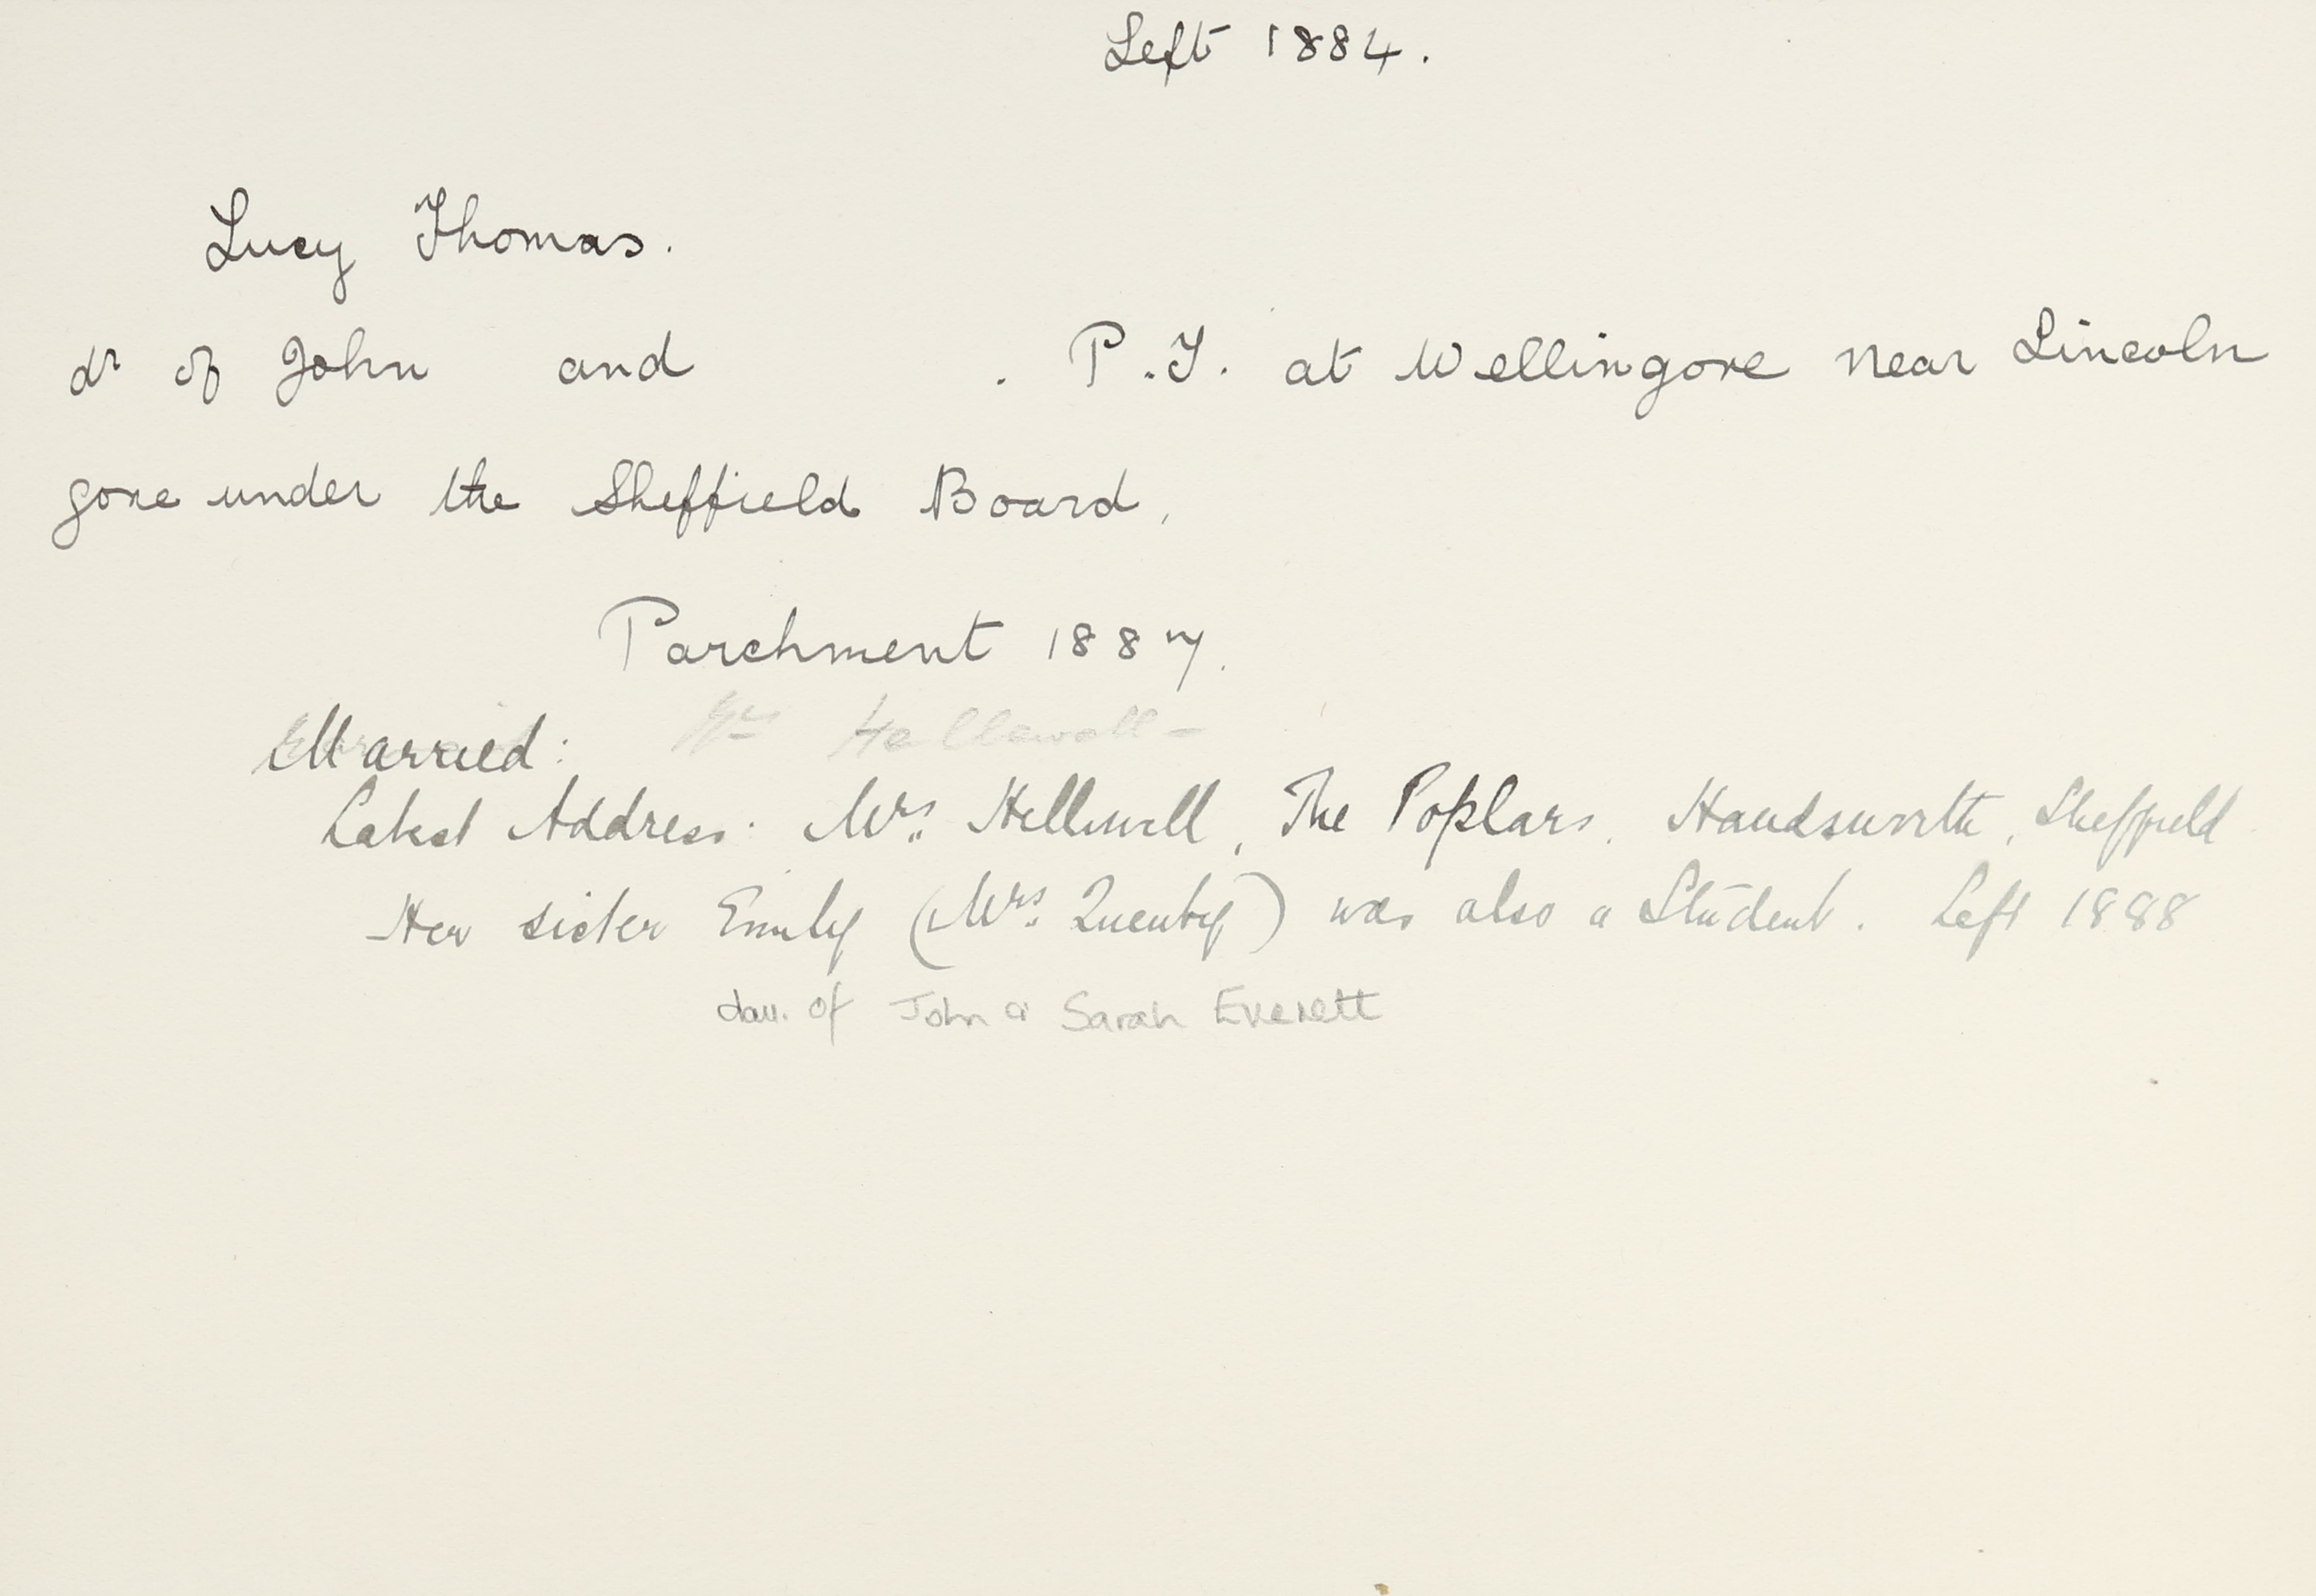 Left 1884.
Lucy Thomas.
dr of John and . P.T. at Wellingore near Lincoln
gone under the Sheffield Board.
Parchment 1887.
Married: Mrs Hellewell -
Latest Address: Mrs. Helliwell, The Poplars. Handsworth, Sheffield
Her sister Emily (Mrs. Quenby) was also a Student. Left 1888
dau. of John & Sarah Everett